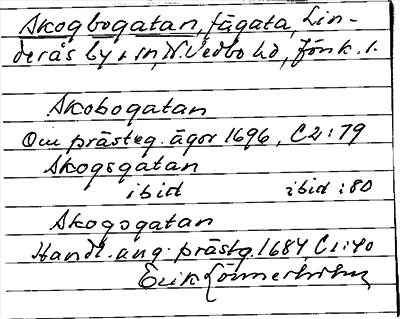 Skogbogatan, fägata, Lin-
derås by o sn, N. Vedbo hd, Jönk. l.
Skobogatan
Om prästeg. ägor 1696, C 2:79
Skogsgatan
ibid ibid :80
Skogsgatan
Handl. ang. prästg. 1684 C 1:40
Erik Lönnerholm